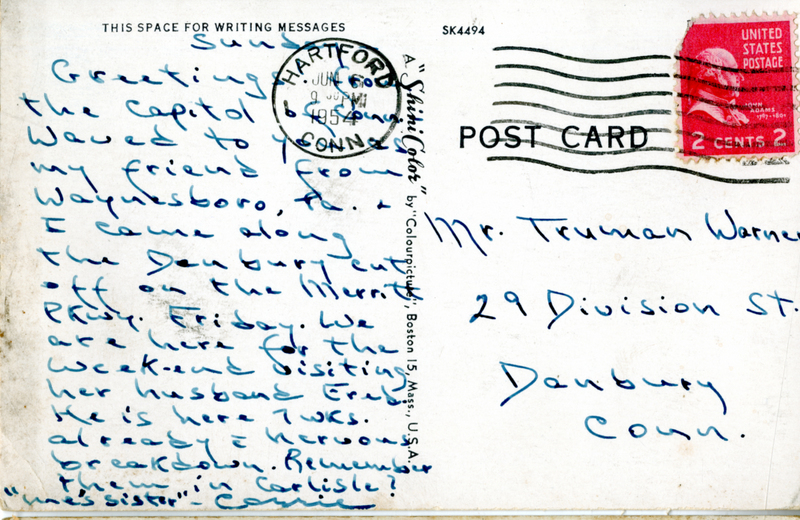 THIS SPACE FOR WRITING MESSAGES
Sund
Greetings from
the capitol of
Waved to you as
my friend from
Waynesboro, Pa. +
I came along
the Danbury cut
off on the Merritt
Pkwy. Friday. We
are here for the
week-end visiting
her husband
He is here 7 wks.
already c nervous
breakdown. Remember
them in Carlisle?
sister" - Cassie
A "ShiniColor" by "Colourpicture", Boston 15, Mass., U.S.A.
SK4494
HARTFORD
JUN 6
PM
1954
CONN
UNITED
STATES
POSTAGE
JOHN
ADAMS
1797-1801
2 CENTS 2
POST CARD
Mr. Truman Warner
29 Division St.
Danbury
Conn.